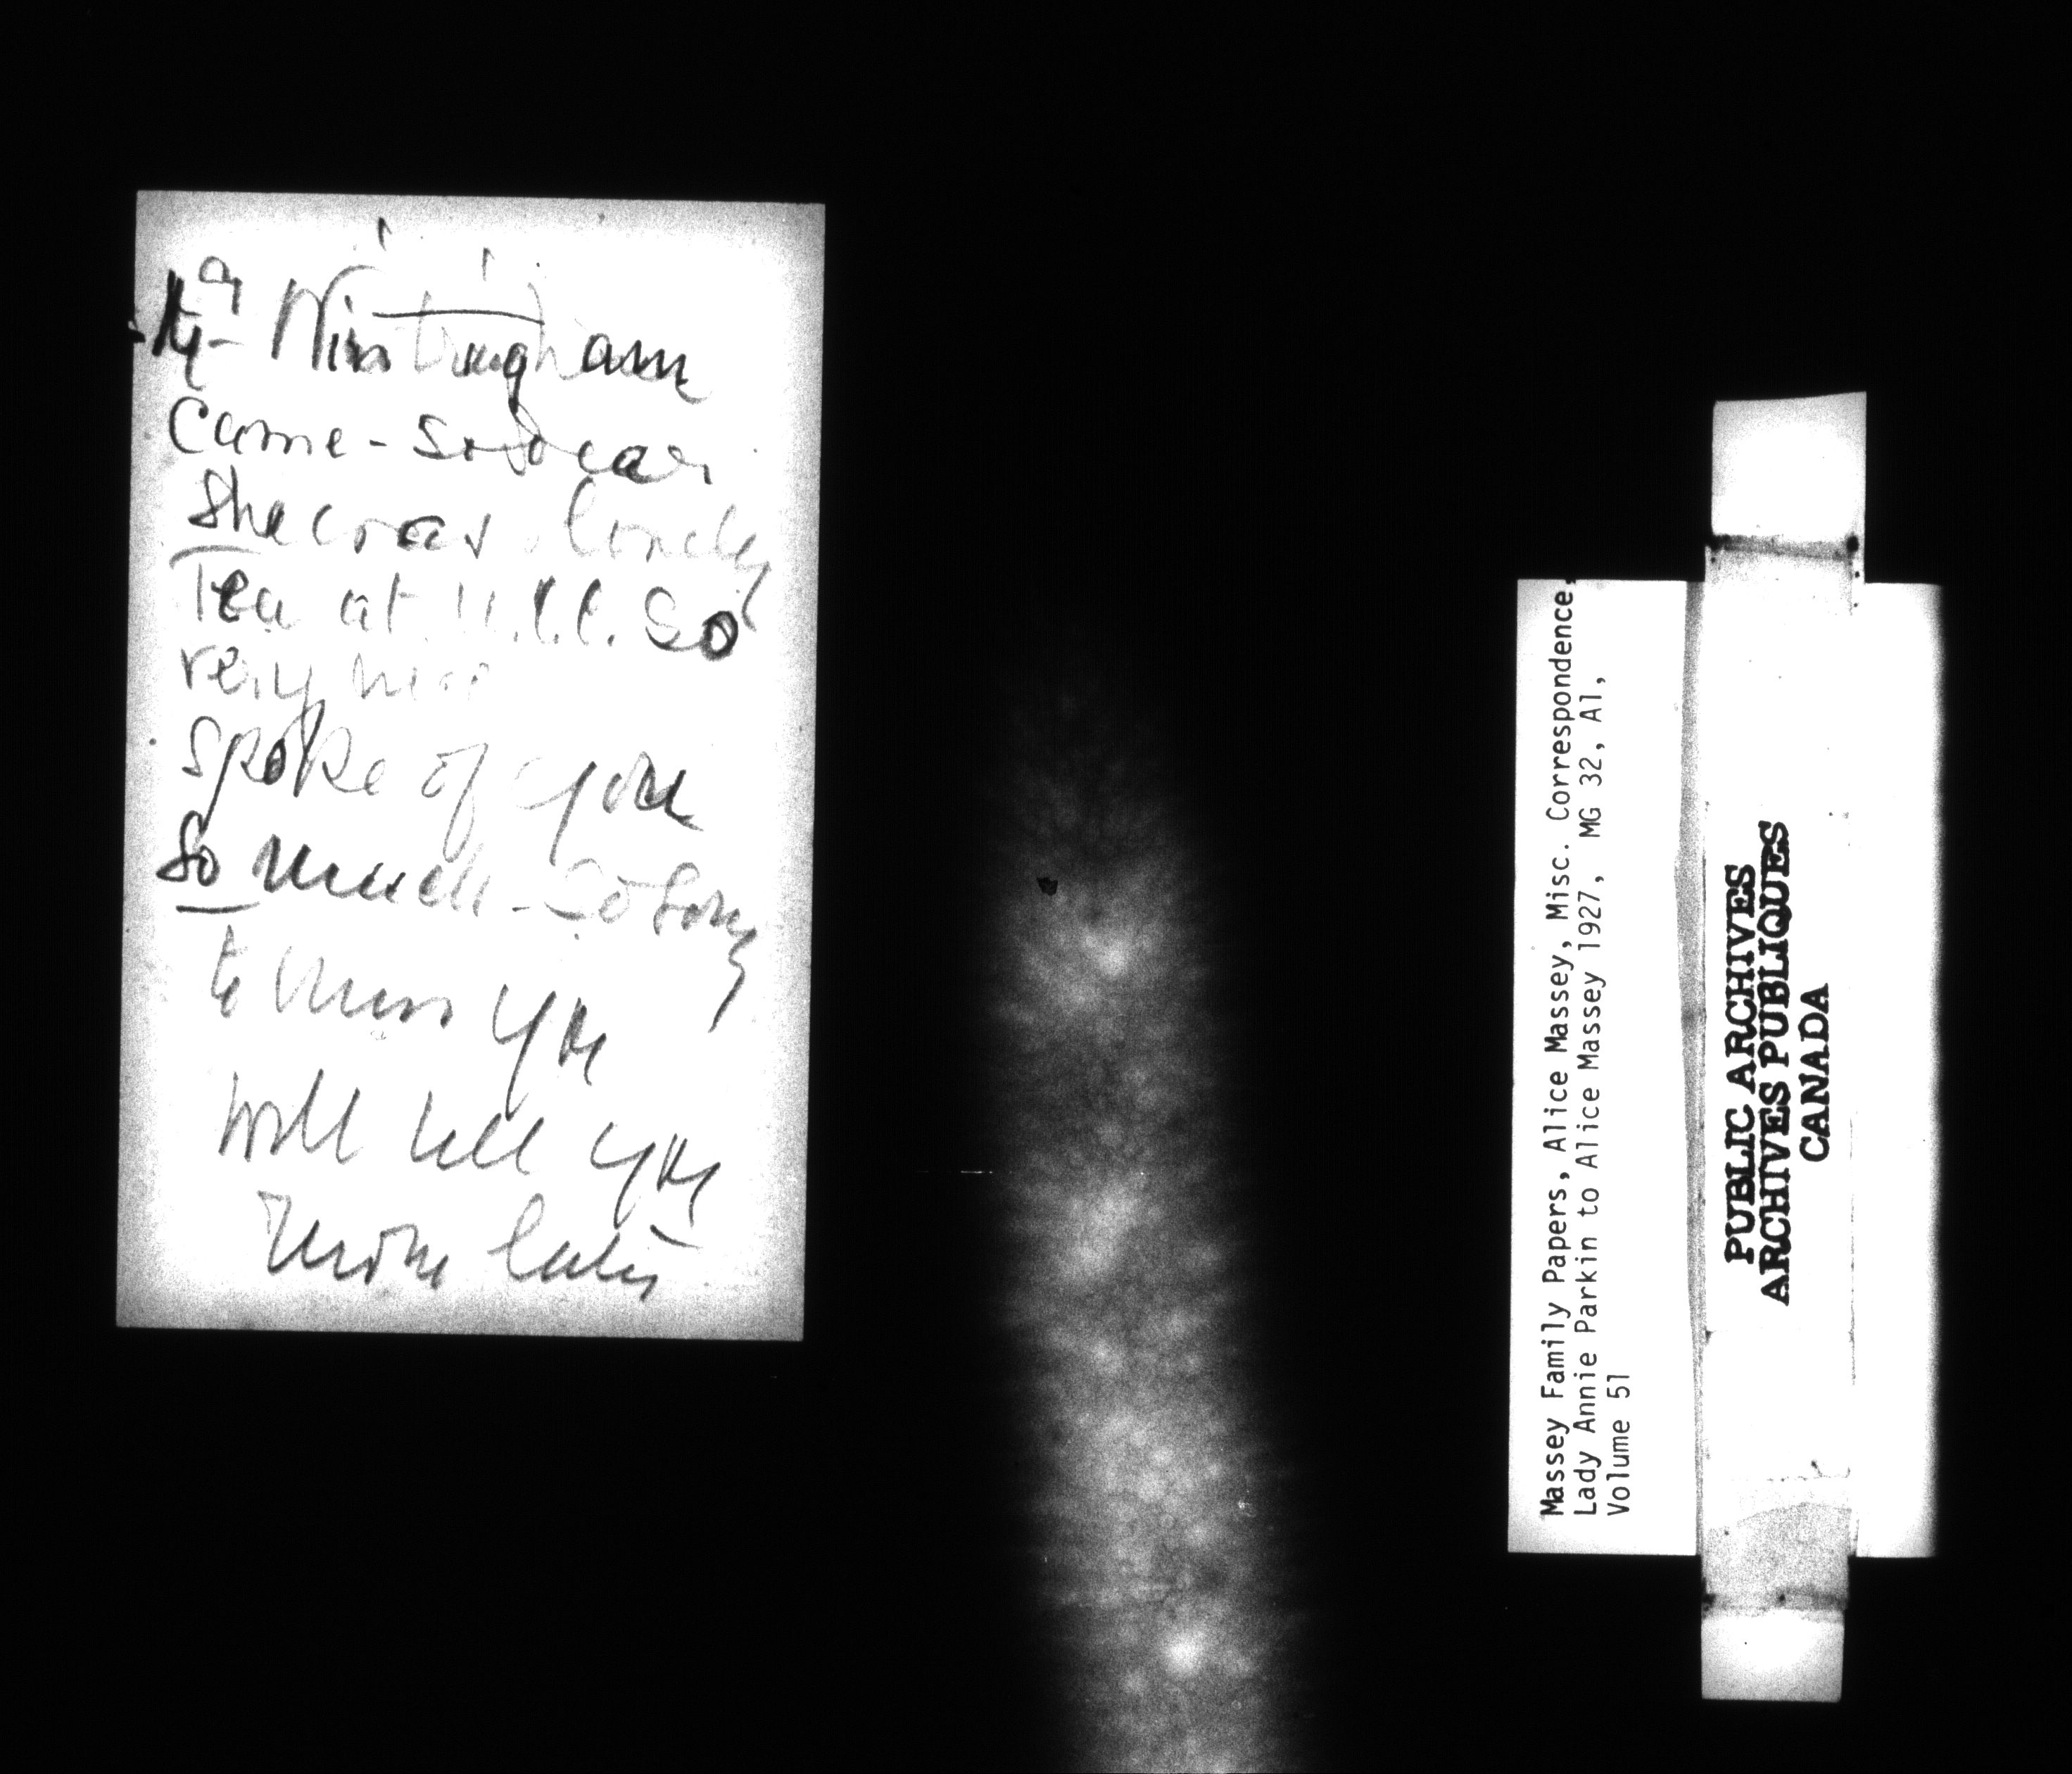 came - So dear
She was lonely
Tea at U.C.C. So
very nice
spoke of you
So much - So sorry
to miss you
will tell you
more later
Massey Family Papers, Alice Massey, Misc. Correspondence:
Lady Annie Parkin to Alice Massey 1927, MG 32, A1,
Volume 51
PUBLIC ARCHIVES
ARCHIVES PUBLIQUES
CANADA